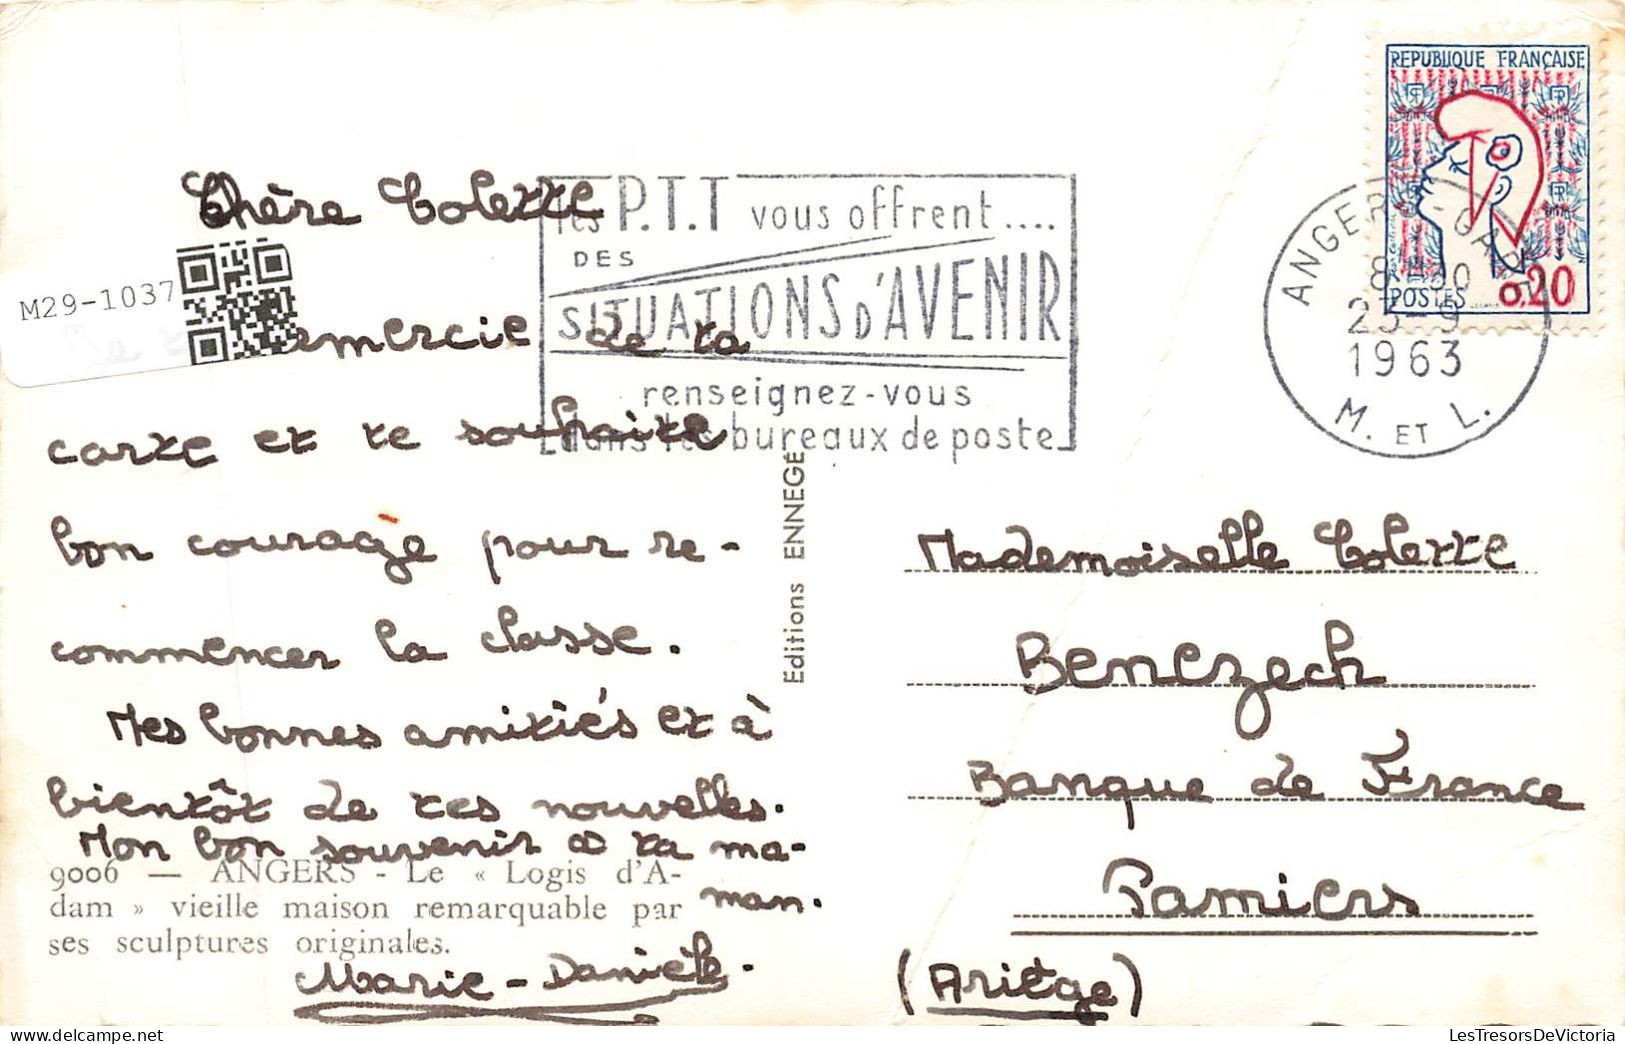 Chère Colette
M29-1037
Je te remercie de ta
carte et te souhaite
bon courage pour re-
commencer la classe.
Mes bonnes amitiés et à
bientôt de tes nouvelles.
Mon bon souvenir à ta ma-
man.
Marie-Danièle.
9006 — ANGERS - Le « Logis d'A-
dam » vieille maison remarquable par
ses sculptures originales.
Editions ENNEGÉ
les P.T.T vous offrent....
DES
SITUATIONS D'AVENIR
renseignez-vous
dans les bureaux de poste
REPUBLIQUE FRANÇAISE
POSTES 0,20
ANGERS-GARE
8H30
23-9
1963
M. ET L.
Mademoiselle Colette
Benezech
Banque de France
Pamiers
(Ariège)
LesTresorsDeVictoria
delcampe.net